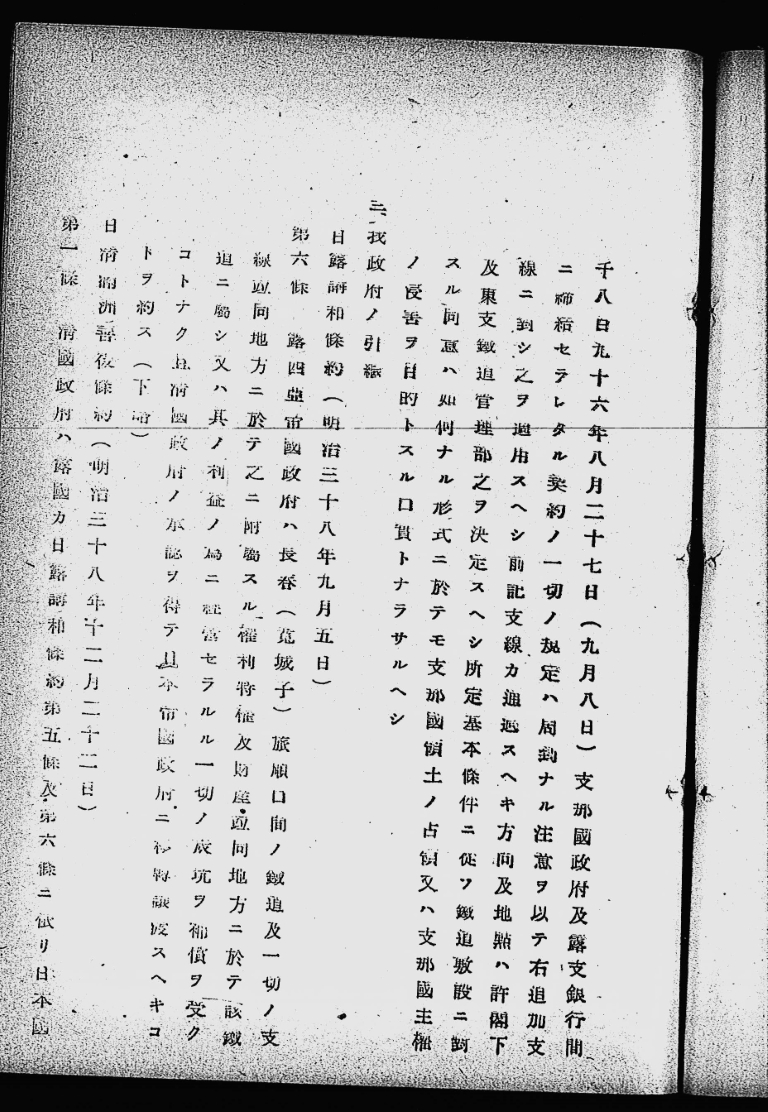 千八百九十六年八月二十七日(九月八日)支那國政府及露支銀行間
ニ締結セラレタル契約ノ一切ノ規定ハ周到ナル注意ヲ以テ右追加支
線ニ對シ之ヲ適用スヘシ前記支線カ通過スヘキ方向及地點ハ許閣下
及東支鐵道管理部之ヲ決定スヘシ所定基本條件ニ從フ鐵道敷設ニ對
スル同意ハ如何ナル形式ニ於テモ支那國領土ノ占領又ハ支那國主權
ノ侵害ヲ目的トスル口實トナラサルヘシ
三、我政府ノ引繼
日露講和條約(明治三十八年九月五日)
第六條 露西亞帝國政府ハ長春(寛城子)旅順口間ノ鐵道及一切ノ支
線竝同地方ニ於テ之ニ附屬スル權利特權及財産竝同地方ニ於テ該鐵
道ニ屬シ又ハ其ノ利益ノ爲ニ經營セラルル一切ノ炭坑ヲ補償ヲ受ク
コトナク且淸國政府ノ承認ヲ得テ日本帝國政府ニ移轉讓渡スヘキコ
トヲ約ス(下略)
日淸滿洲善後條約(明治三十八年十二月二十二日)
第一條 淸國政府ハ露國カ日露講和條約第五條及第六條ニ依リ日本國